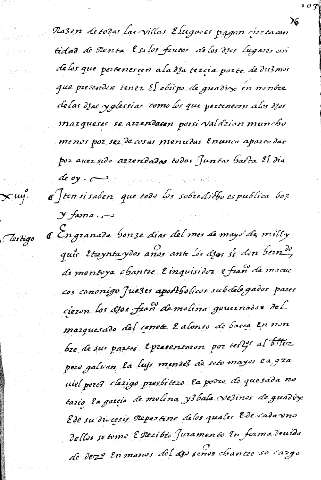 76
Razon de todas las villas E lugares pagan cierta can
tidad de Renta E si los frutos de los dhos lugares ansi
de los que pertenescen a la dha tercia parte de diezmos
que pretende tener El obispo de guadix en nonbre
de las dhas yglesias como los que pertenecen a los dhos
marqueses se arrendasen por si valdrian muncho
menos por ser de cosas menudas E nunca aparesdas
por aver andado arrendadas todas Juntas hasta El dia
de oy
Iten si saben que todo lo sobredicho es publica boz
y fama
testigo
En granada honze dias del mes de mayo de mill y
quis E treynta y dos años ante los dhos ss don bernardo
de montoya chantre E inquisidor E franco de marcos
cos canonigo Juezes apostholicos subdelegados pares
cieron los dhos franco de molina governador del
marquesado del cenete E alonso de baeça En non
bre de sus partes E presentaron por testigos al
pero galvan E a luis mendez de soto mayor E a gra
viel perez clerigo presbitero E a pedro de quesada no
tario E a garcia de molina vezinos de guadix
E de su diocesis Repertino de los quales E de cada vno
dellos se tomo E Recibio Juramento En forma devida
de derecho En manos del dho señor chantre so cargo